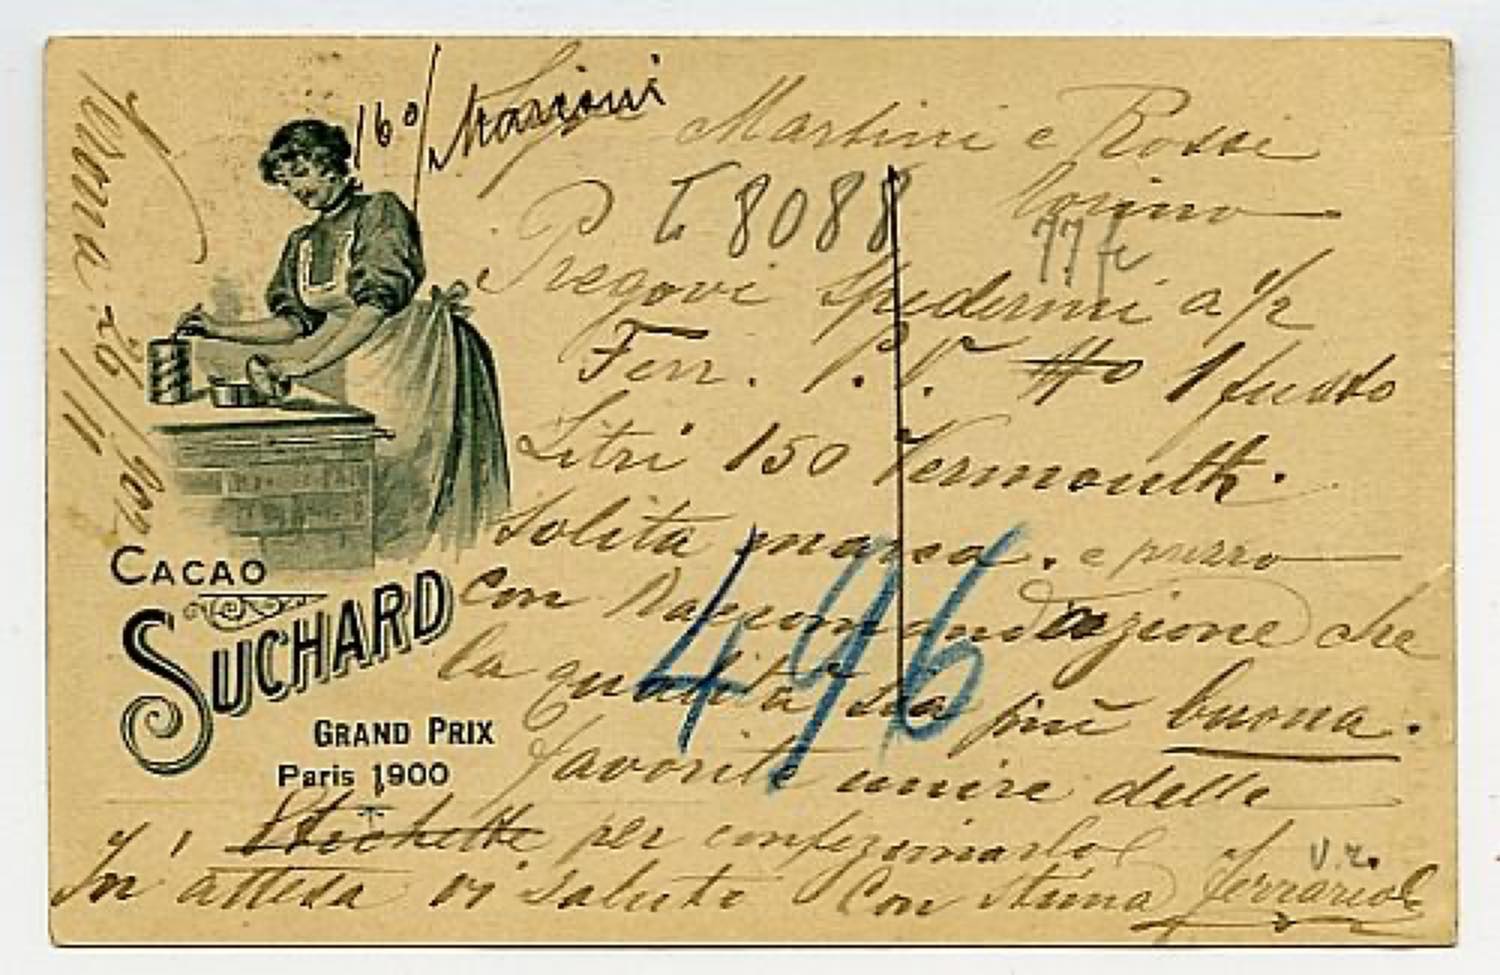 160/
Martini e Rossi
Torino
8088
77
Pregovi spedirmi a ½
Ferr. P. V. 1 fusto
Litri 150 Vermouth.
Solita marca. e puro
Con Raccomandazione che
la qualità sia più buona.
favorite unire delle
Etichette per confezionarlo
In attesa vi saluto Con stima
496
26/11
CACAO
SUCHARD
GRAND PRIX
Paris 1900